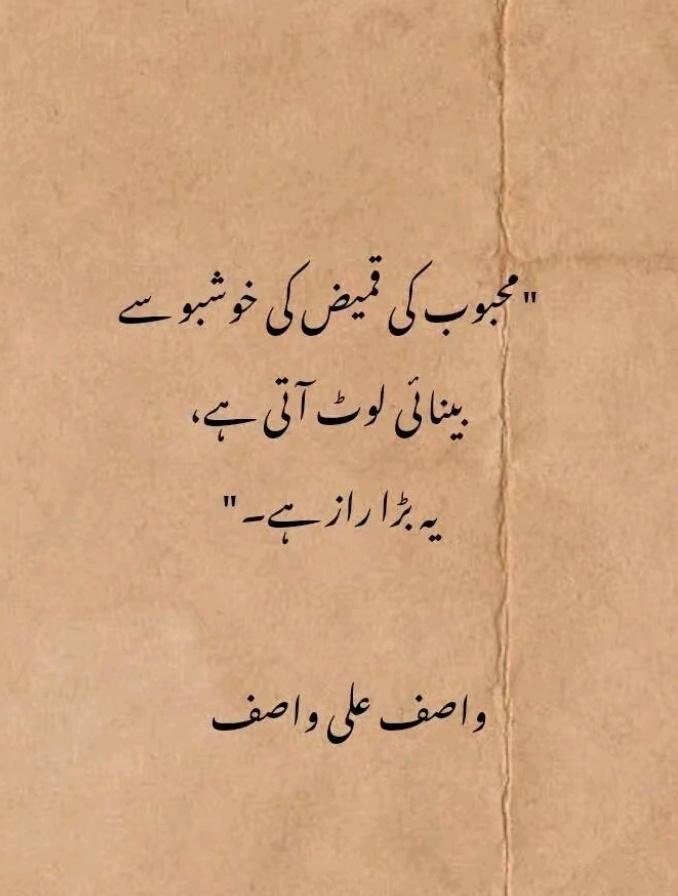 "محبوب کی قمیض کی خوشبو سے
بینائی لوٹ آتی ہے،
یہ بڑا راز ہے۔"
واصف علی واصف